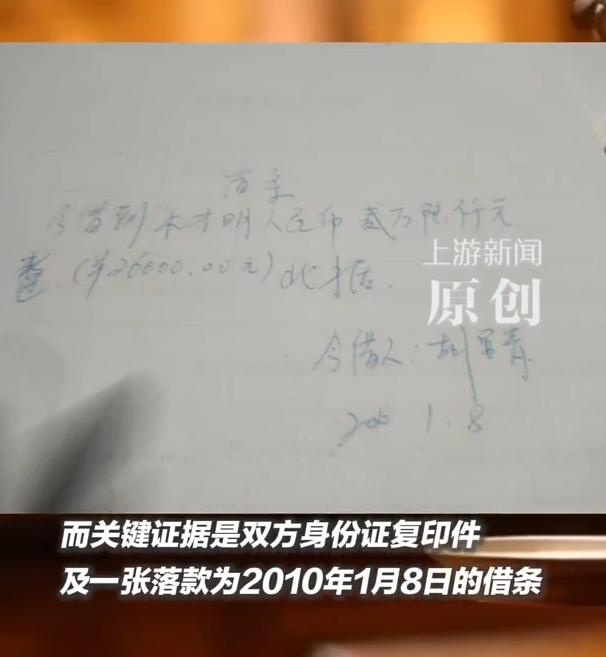 借条
今借到木才明人民币贰万陆仟元
整.(¥26000.00元)此据.
上游新闻
原创
今借人:胡
1.8
而关键证据是双方身份证复印件
及一张落款为2010年1月8日的借条